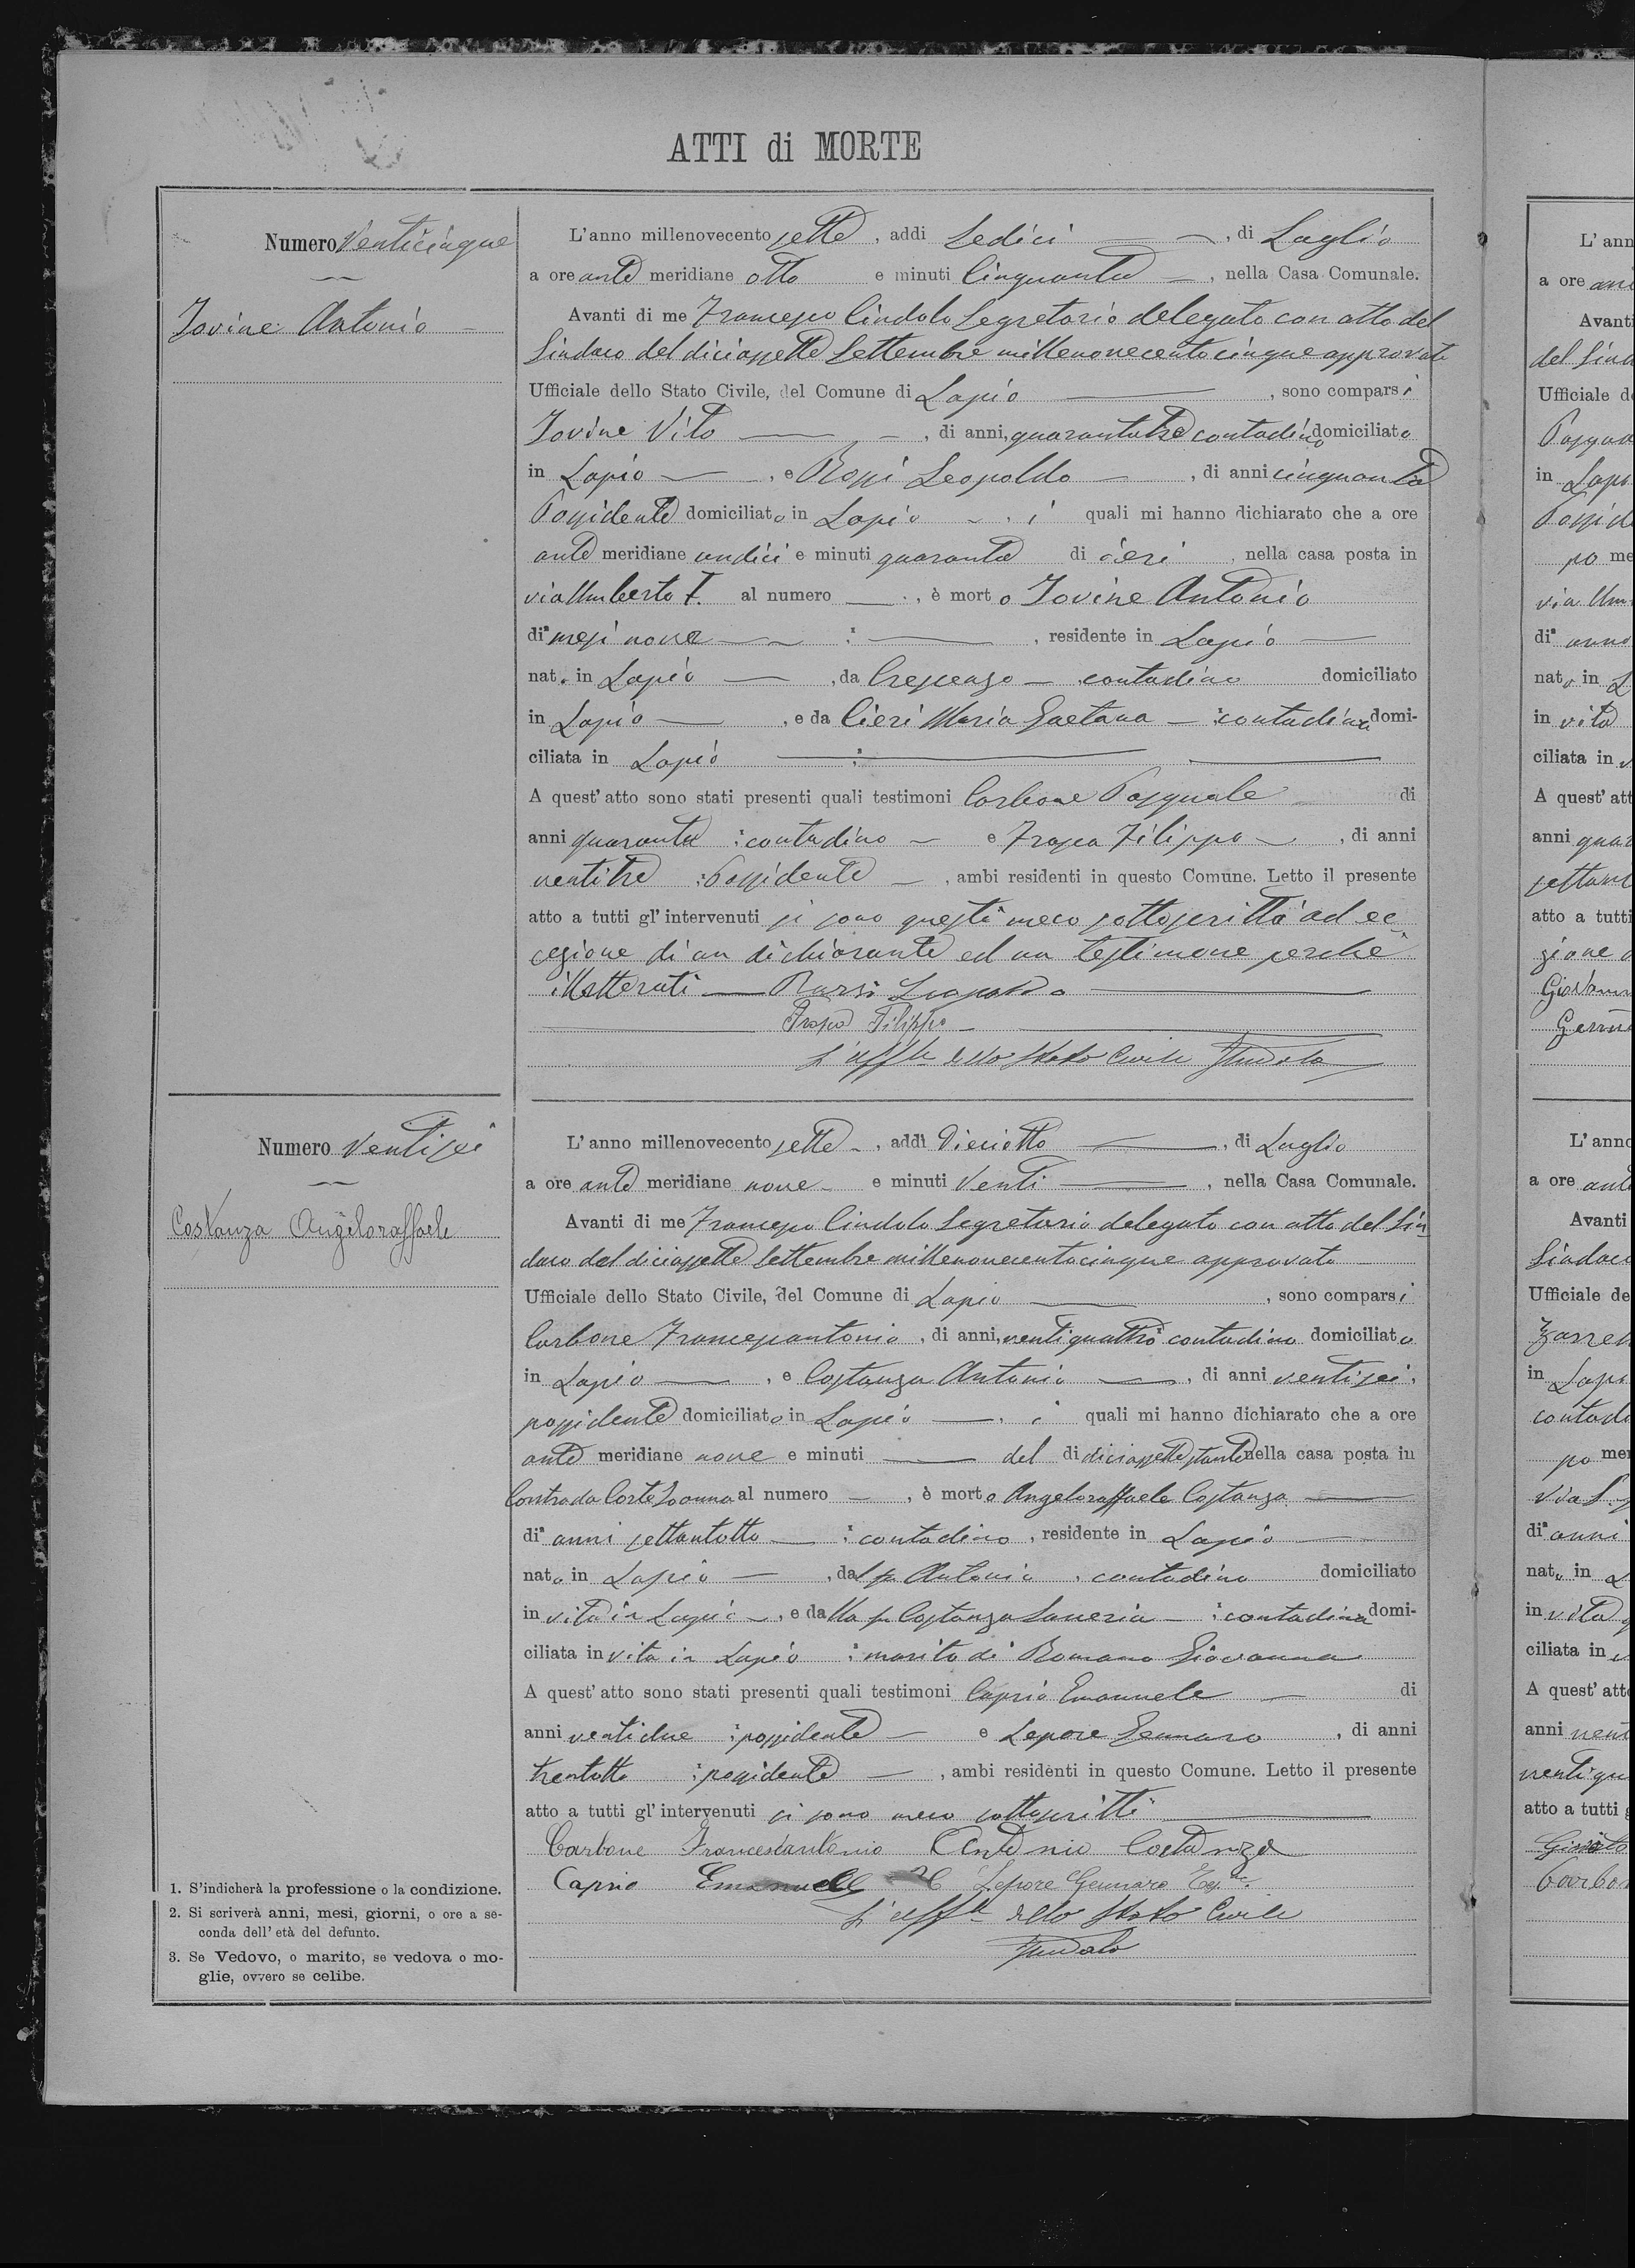 ATTI di MORTE
Numero Venticinque
Iovine Antonio
L'anno millenovecento sette, addi Sedici, di Luglio
a ore ante meridiane otto e minuti Cinquanta, nella Casa Comunale.
Avanti di me Francesco Cindolo Segretario delegato con atto del
Sindaco del diciassette Settembre millenovecentocinque approvato
Ufficiale dello Stato Civile, del Comune di Lapio, sono comparsi
Iovine Vito, di anni, quarantatre contadino domiciliato
in Lapio, e Rossi Leopoldo, di anni cinquanta
Possidente domiciliato in Lapio, i quali mi hanno dichiarato che a ore
ante meridiane undici e minuti quaranta di ieri, nella casa posta in
via Umberto I. al numero, è morto Iovine Antonio
di mesi nove, residente in Lapio
nato in Lapio, da Crescenzo contadino domiciliato
in Lapio, e da Cieri Maria Gaetana contadina domi-
ciliata in Lapio
A quest'atto sono stati presenti quali testimoni Carbone Pasquale di
anni quaranta contadino e Frasca Filippo, di anni
ventitre Possidente, ambi residenti in questo Comune. Letto il presente
atto a tutti gl'intervenuti si sono questi meco sottoscritti ad ec
cezione di un dichiarante ed un testimone perchè
illetterati Rossi Leopoldo
Filippo
L'Uff.le dello Stato Civile Cindolo
Numero Ventisei
Costanza Angeloraffaele
L'anno millenovecento sette, addi Dieciotto, di Luglio
a ore ante meridiane nove e minuti Venti, nella Casa Comunale.
Avanti di me Francesco Cindolo Segretario delegato con atto del Sin
daco del diciassette Settembre millenovecentocinque approvato
Ufficiale dello Stato Civile, del Comune di Lapio, sono comparsi
Carbone Francescantonio, di anni, ventiquattro contadino domiciliato
in Lapio, e Costanza Antonio, di anni ventisei,
possidente domiciliato in Lapio, i quali mi hanno dichiarato che a ore
ante meridiane nove e minuti del di diciassette stante nella casa posta in
Contrada Corte Ioanna al numero, è morto Angeloraffaele Costanza
di anni settantotto contadino, residente in Lapio
nato in Lapio, dal fu Antonio, contadino domiciliato
in vita in Lapio, e dalla fu Costanza Saveria contadina domi-
ciliata in vita in Lapio marito di Romano Giovanna
A quest'atto sono stati presenti quali testimoni Caprio Emanuele di
anni ventidue possidente e Lepore Gennaro, di anni
trentotto possidente, ambi residenti in questo Comune. Letto il presente
atto a tutti gl'intervenuti si sono meco sottoscritti
Carbone Francescantonio Antonio Costanza
Caprio Emanuele Lepore Gennaro
L'Uff.le dello Stato Civile
Cindolo
1. S'indicherà la professione o la condizione.
2. Si scriverà anni, mesi, giorni, o ore a se-
conda dell'età del defunto.
3. Se Vedovo, o marito, se vedova o mo-
glie, ovvero se celibe.
L'ann
a ore
Avanti
del Sind
Ufficiale d
in
po me
via Um
di
nato in L
in vita
ciliata in
A quest'att
anni quar
settant
atto a tutti
zione
Giovann
L'anno
a ore ant
Avanti
Sindaco
Ufficiale de
in Lapi
contad
po mer
di anni
nato in
in vita
ciliata in
A quest'atto
anni vent
ventiqu
atto a tutti
Carbo